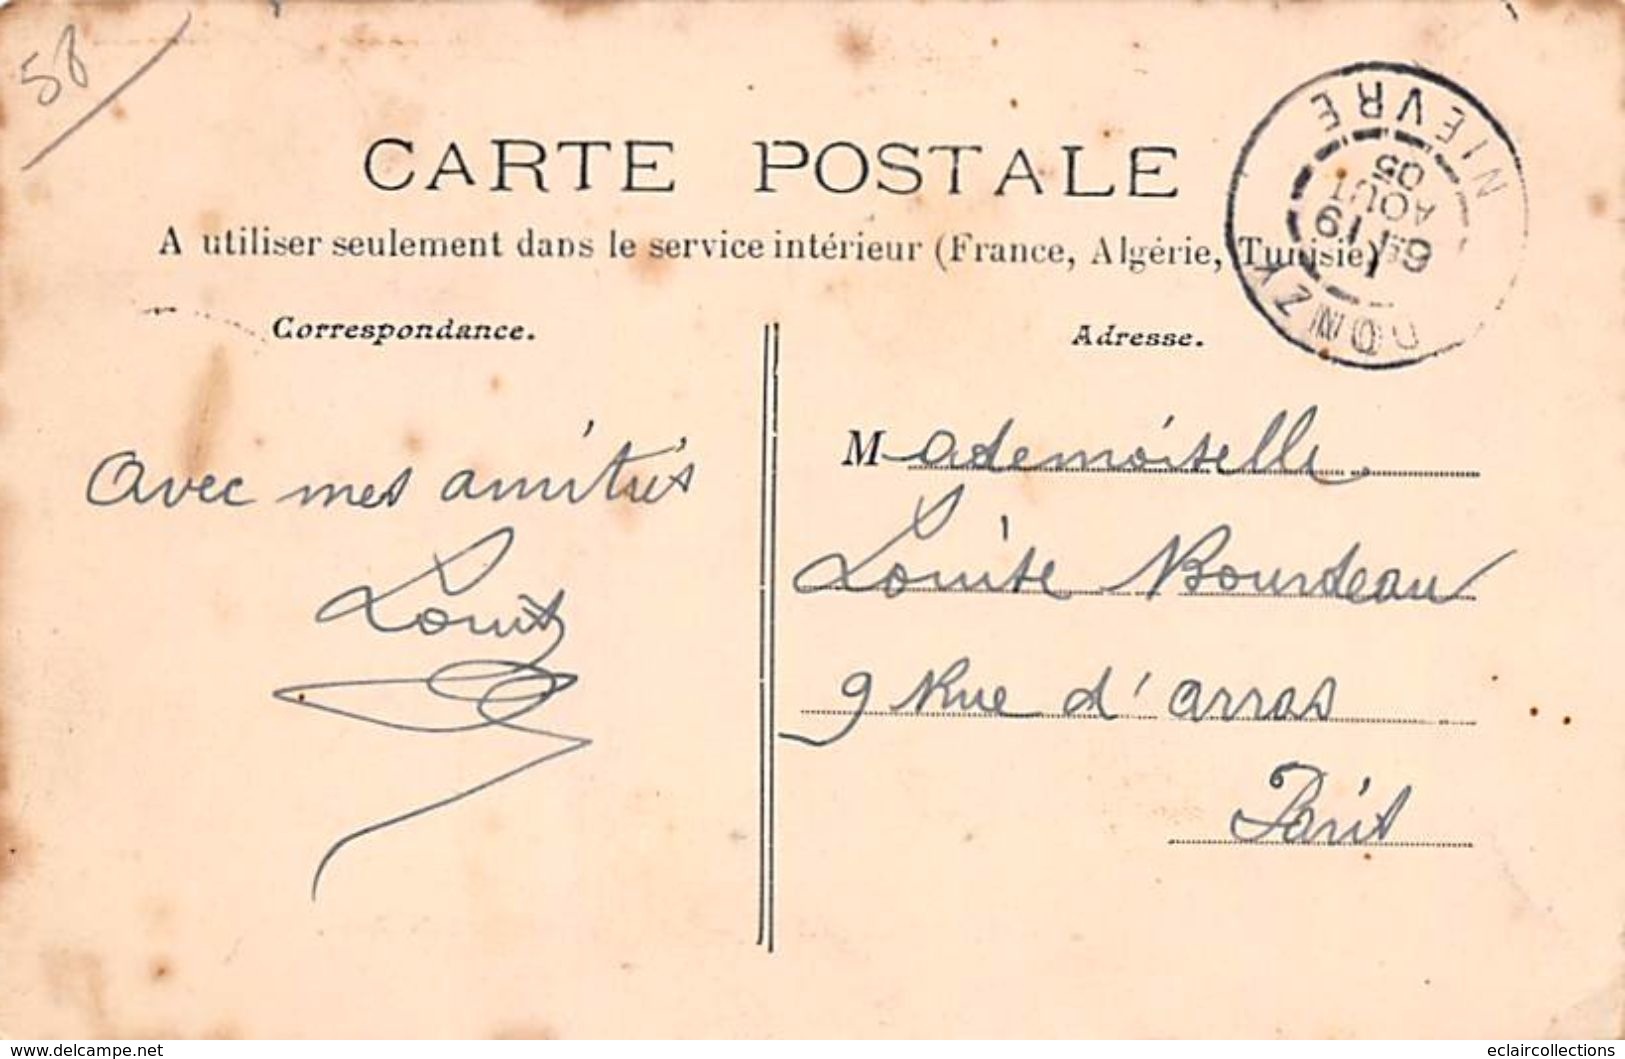 58
CARTE POSTALE
A utiliser seulement dans le service intérieur (France, Algérie, Tunisie)
DONZY
NIEVRE
19
AOUT
05
Correspondance.
Adresse.
Avec mes amitiés
Louis
Mademoiselle
Louise Bourdeau
9 Rue d'arras
Paris
www.delcampe.net
eclaircollections